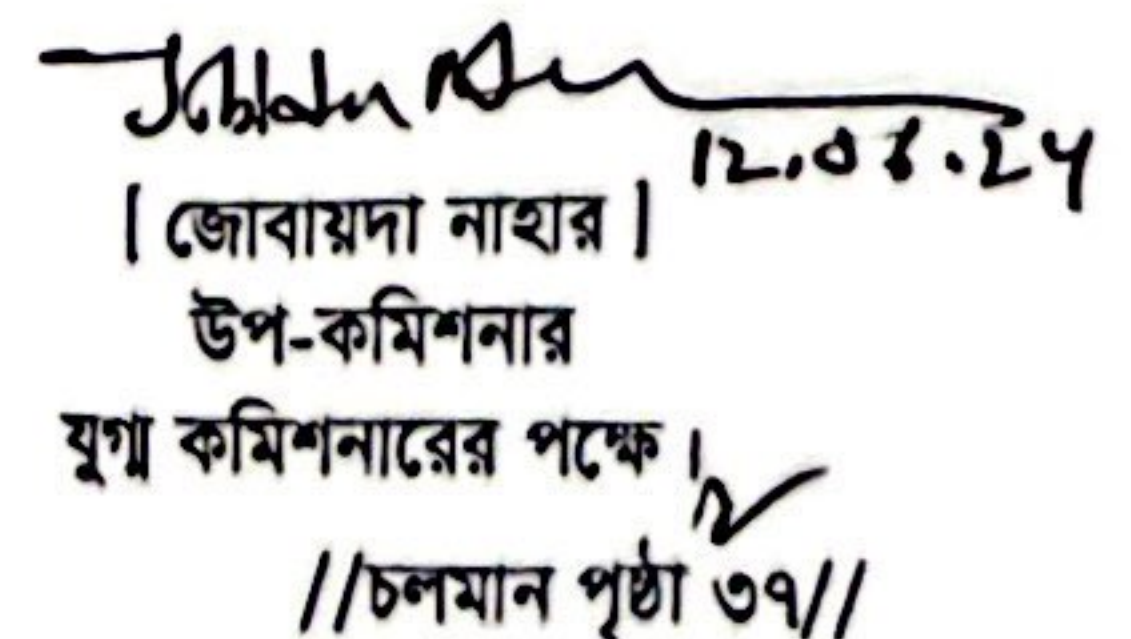 12.08.24
| জোবায়দা নাহার |
উপ-কমিশনার
যুগ্ম কমিশনারের পক্ষে।
//চলমান পৃষ্ঠা ৩৭//